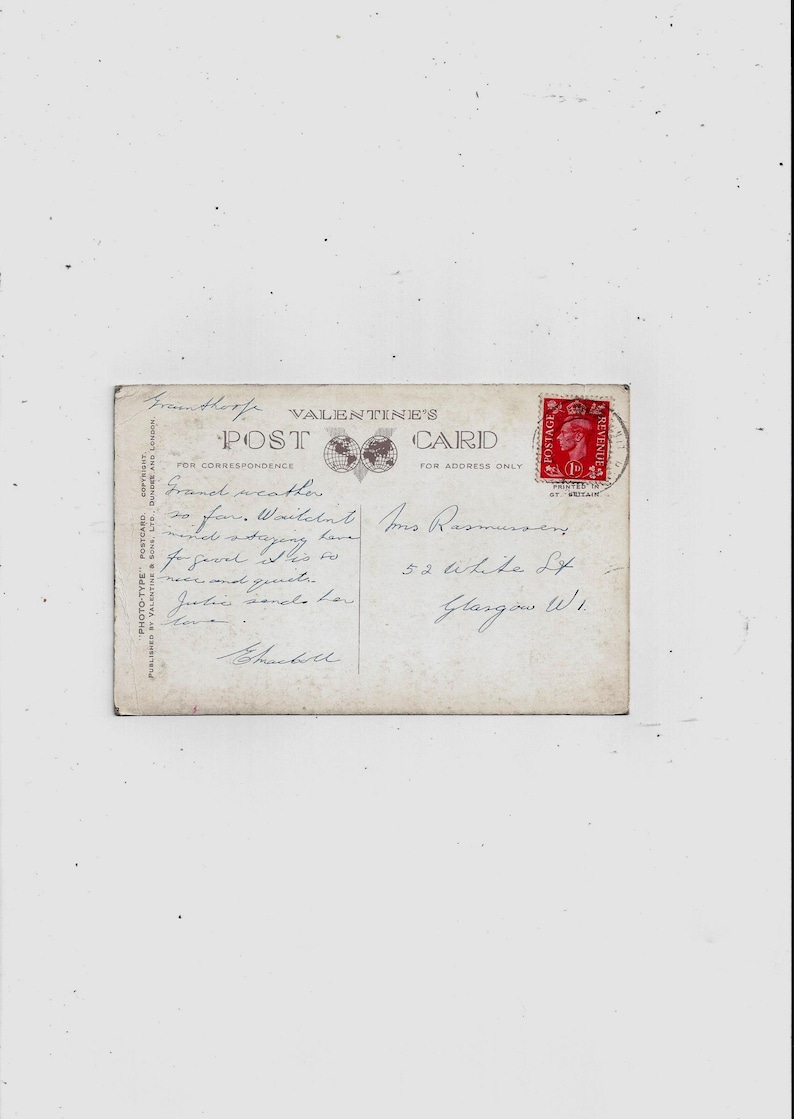 Grainthorpe
VALENTINE'S
POST CARD
FOR CORRESPONDENCE
FOR ADDRESS ONLY
POSTAGE
REVENUE
1D
PRINTED IN
GT. BRITAIN
"PHOTO-TYPE" POSTCARD. COPYRIGHT.
PUBLISHED BY VALENTINE & SONS, LTD., DUNDEE AND LONDON.
Grand weather
so far. Wouldn't
mind staying here
for good it is so
nice and quiet.
Julie sends her
love.
Mrs Rasmussen
52 White St
Glasgow W1.